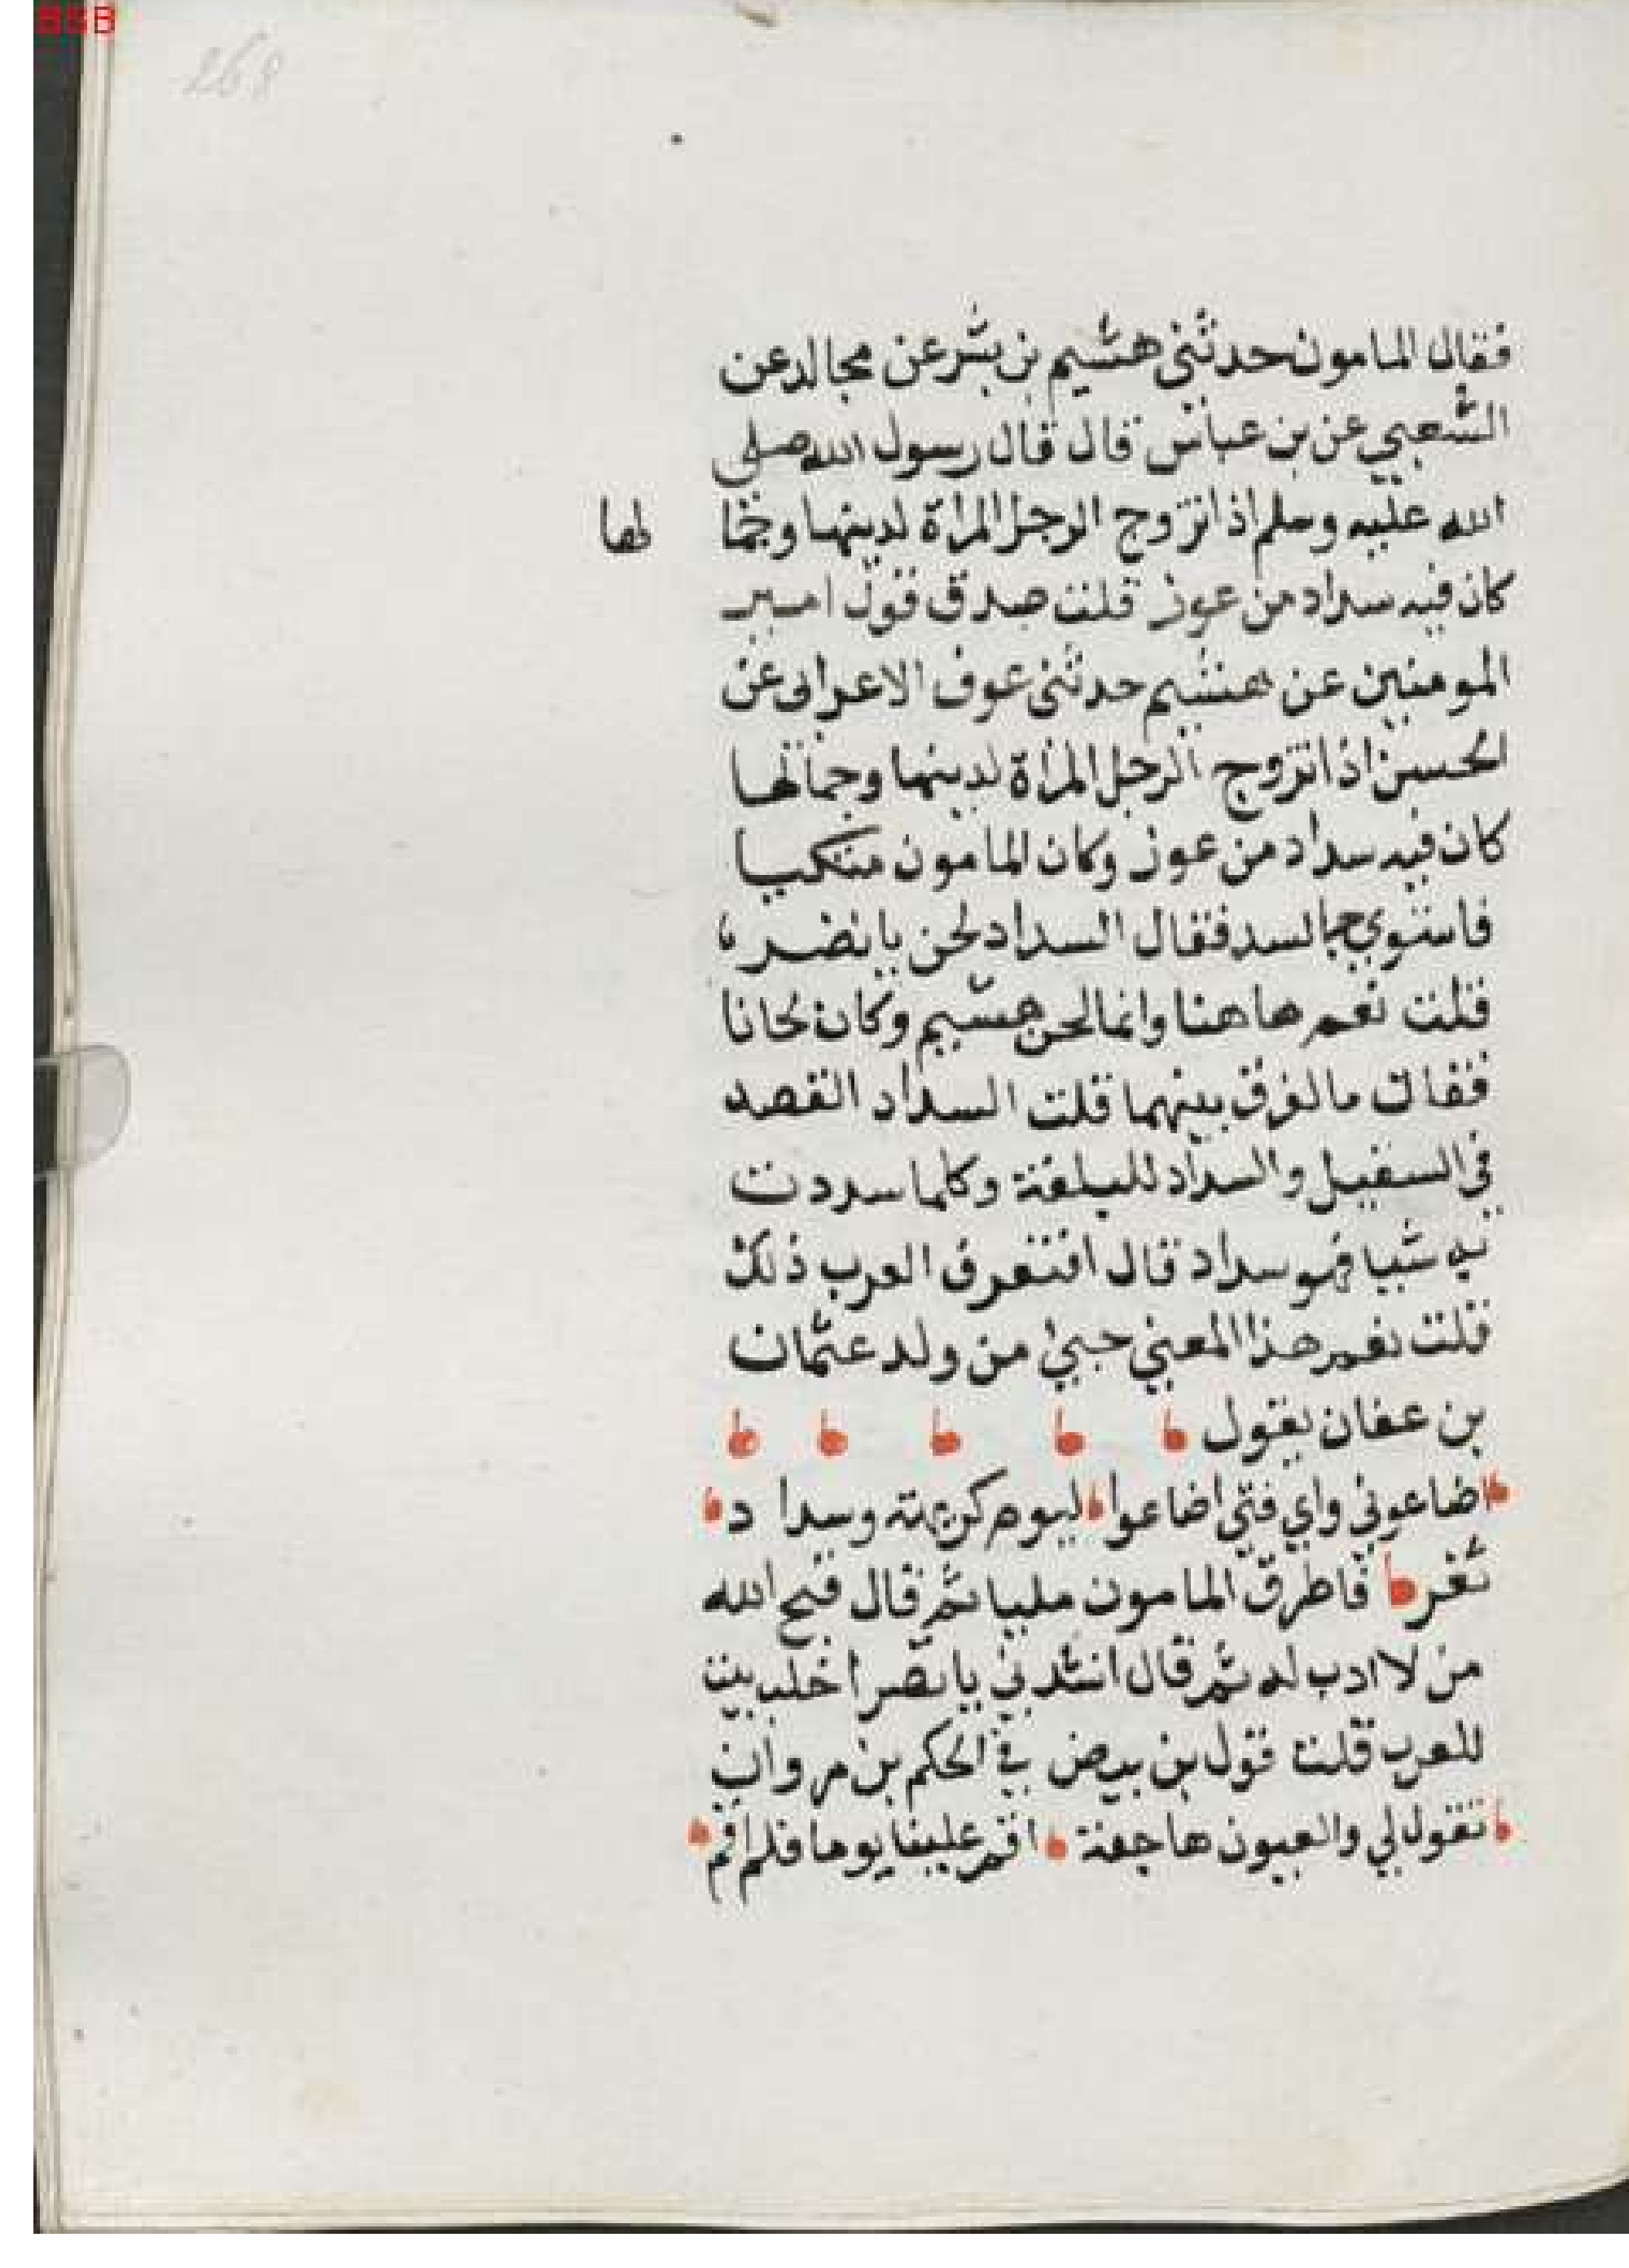 BSB
268
فقال المامون حدثني هشيم بن بشر عن مجالد عن
الشعبي عن بن عباس قال قال رسول الله صلى
الله عليه وسلم اذا تزوج الرجل المراة لدينها وجما لها
كان فيه سداد من عوز قلت صدق قول امير
المومنين عن هشيم حدثني عوف الاعرابي عن
الحسن اذا تزوج الرجل المراة لدينها وجمالها
كان فيه سداد من عوز وكان المامون متكيا
فاستوي جالسد فقال السداد لحن يا نضر
قلت نعم هاهنا وانما لحن هشيم وكان لحانا
فقال ما لفرق بينهما قلت السداد القصد
في السفيل والسداد للبلغة وكلما سددت
به شيا فهو سداد قال افتعرف العرب ذلك
قلت نعم هذا المعني من ولد عثمان
بن عفان يقول
اضاعوني واي فتي اضاعوا ليوم كريهته وسدا د
ثغر فاطرق المامون مليا ثم قال قبح الله
من لا ادب له ثم قال انشدني يا نضر اخلب بيت
للعرب قلت قول بن بيض في الحكم بن مروان
تقول لي والعيون هاجعة اقم علينا يوما فلم اقم